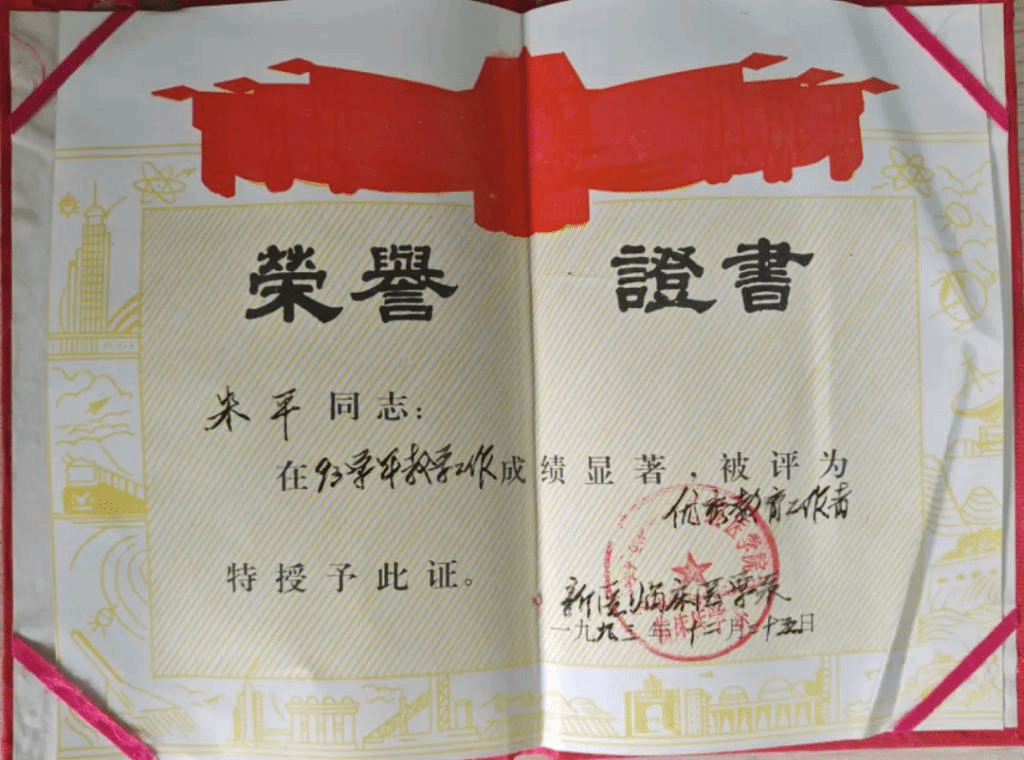 榮譽 證書
朱平同志：
在93学年教学工作成绩显著，被评为
优秀教育工作者
特授予此证。
新医临床医学系
一九九三年十二月二十五日
医学院
临床医学